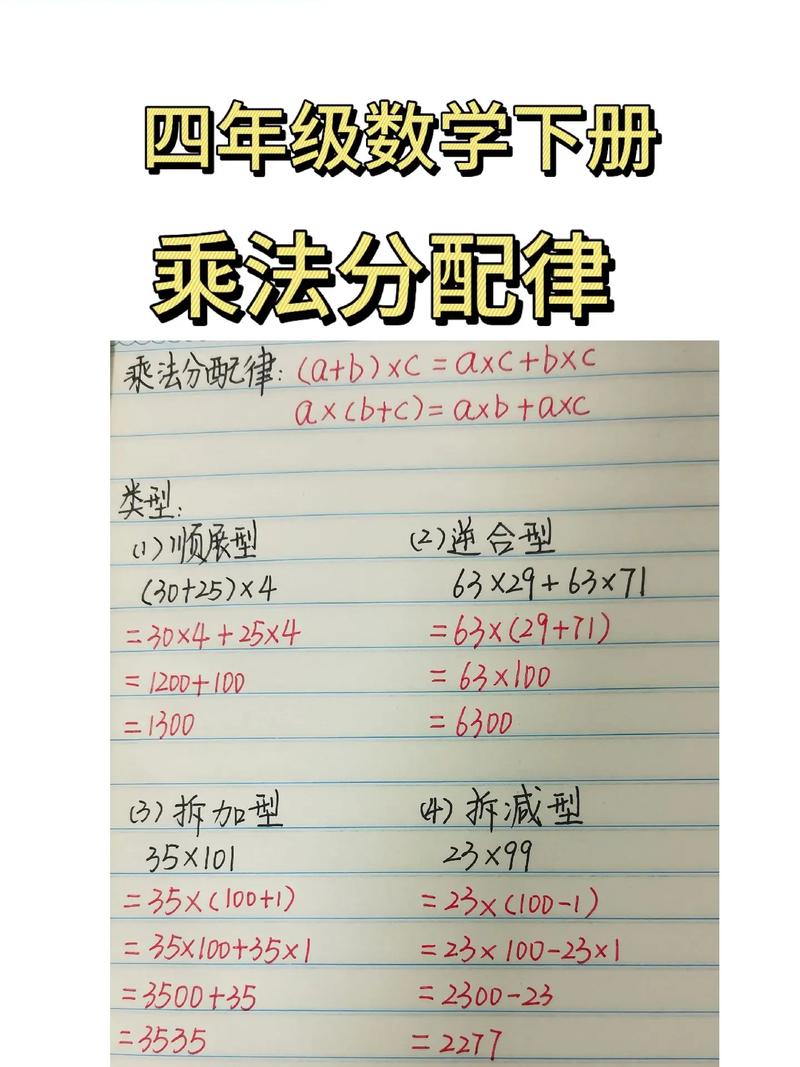 四年级数学下册
乘法分配律
乘法分配律: (a+b)×c=a×c+b×c
a×(b+c)=a×b+a×c
类型:
(1)顺展型
(30+25)×4
=30×4+25×4
=1200+100
=1300
(2)逆合型
63×29+63×71
=63×(29+71)
=63×100
=6300
(3)拆加型
35×101
=35×(100+1)
=35×100+35×1
=3500+35
=3535
(4)拆减型
23×99
=23×(100-1)
=23×100-23×1
=2300-23
=2277